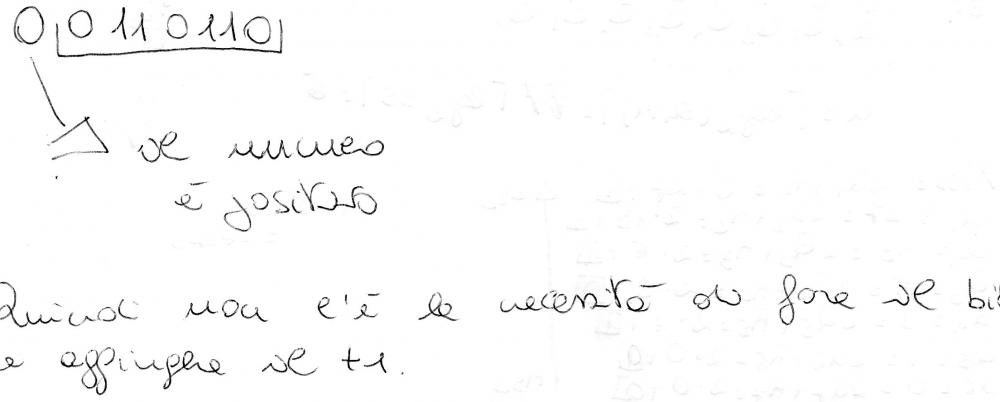 0 0110110
il numero
è positivo
Quindi non c'è la necessità di fare il
e aggiungere il +1.